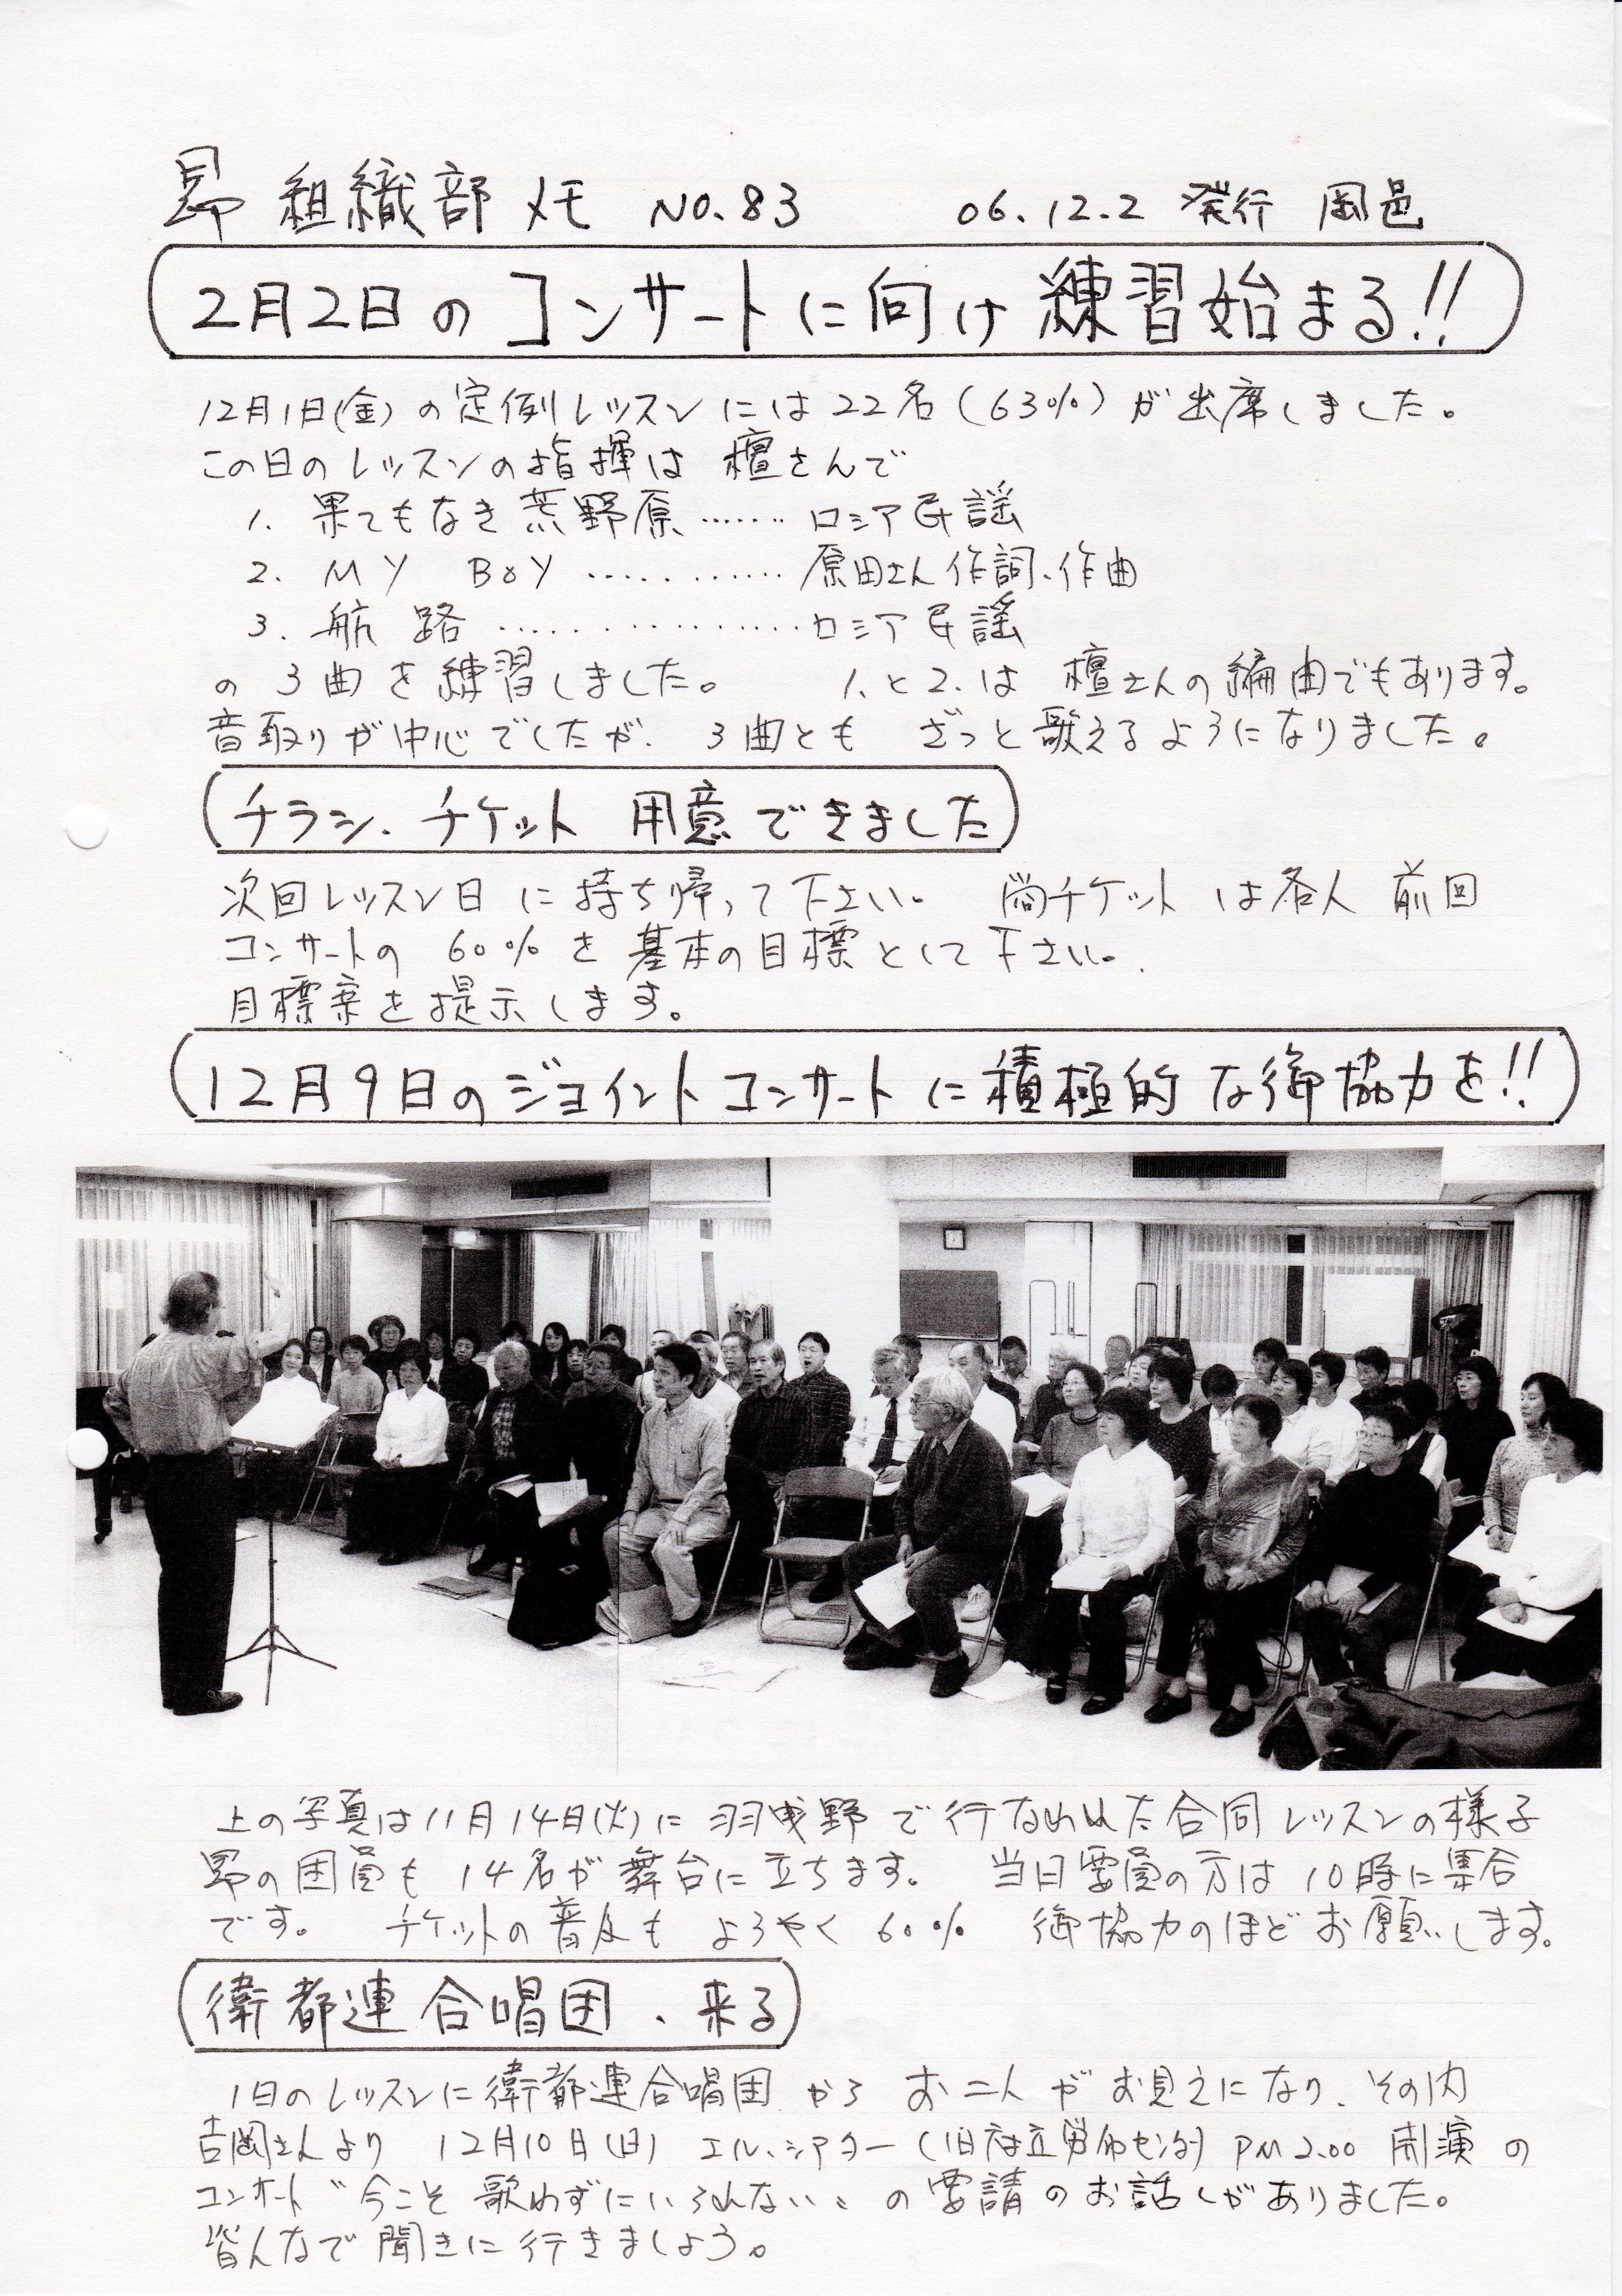 昴 組織部 メモ NO.83 06.12.2 発行 岡邑
2月2日の コンサートに向け 練習始まる!!
12月1日(金)の定例レッスンには22名(63%)が出席しました。
この日のレッスンの指揮は 檀さんで
1. 果てもなき荒野原……ロシア民謡
2. MY BOY …………原田さん作詞、作曲
3. 航路 ……………ロシア民謡
の 3曲を練習しました。 1.と2.は 檀さんの編曲でもあります。
音取りが中心でしたが、3曲とも ざっと歌えるようになりました。
チラシ、チケット 用意できました
次回レッスン日に持ち帰って下さい。 尚チケットは各人 前回
コンサートの 60%を基本の目標として下さい。
目標案を提示します。
12月9日のジョイントコンサートに積極的な御協力を!!
上の写真は11月14日(火)に 羽曳野で行なわれた合同レッスンの様子
昴の団員も 14名が舞台に立ちます。 当日要員の方は10時に集合
です。 チケットの普及も ようやく 60% 御協力のほどお願いします。
衛都連合唱団、来る
1日のレッスンに衛都連合唱団から お二人がお見えになり、その内
吉岡さんより 12月10日(日) エル、シアター(旧府立労働センター) PM 2.00 開演の
コンサート〝今こそ 歌わずにいられない〟の要請のお話しがありました。
皆んなで聞きに行きましょう。